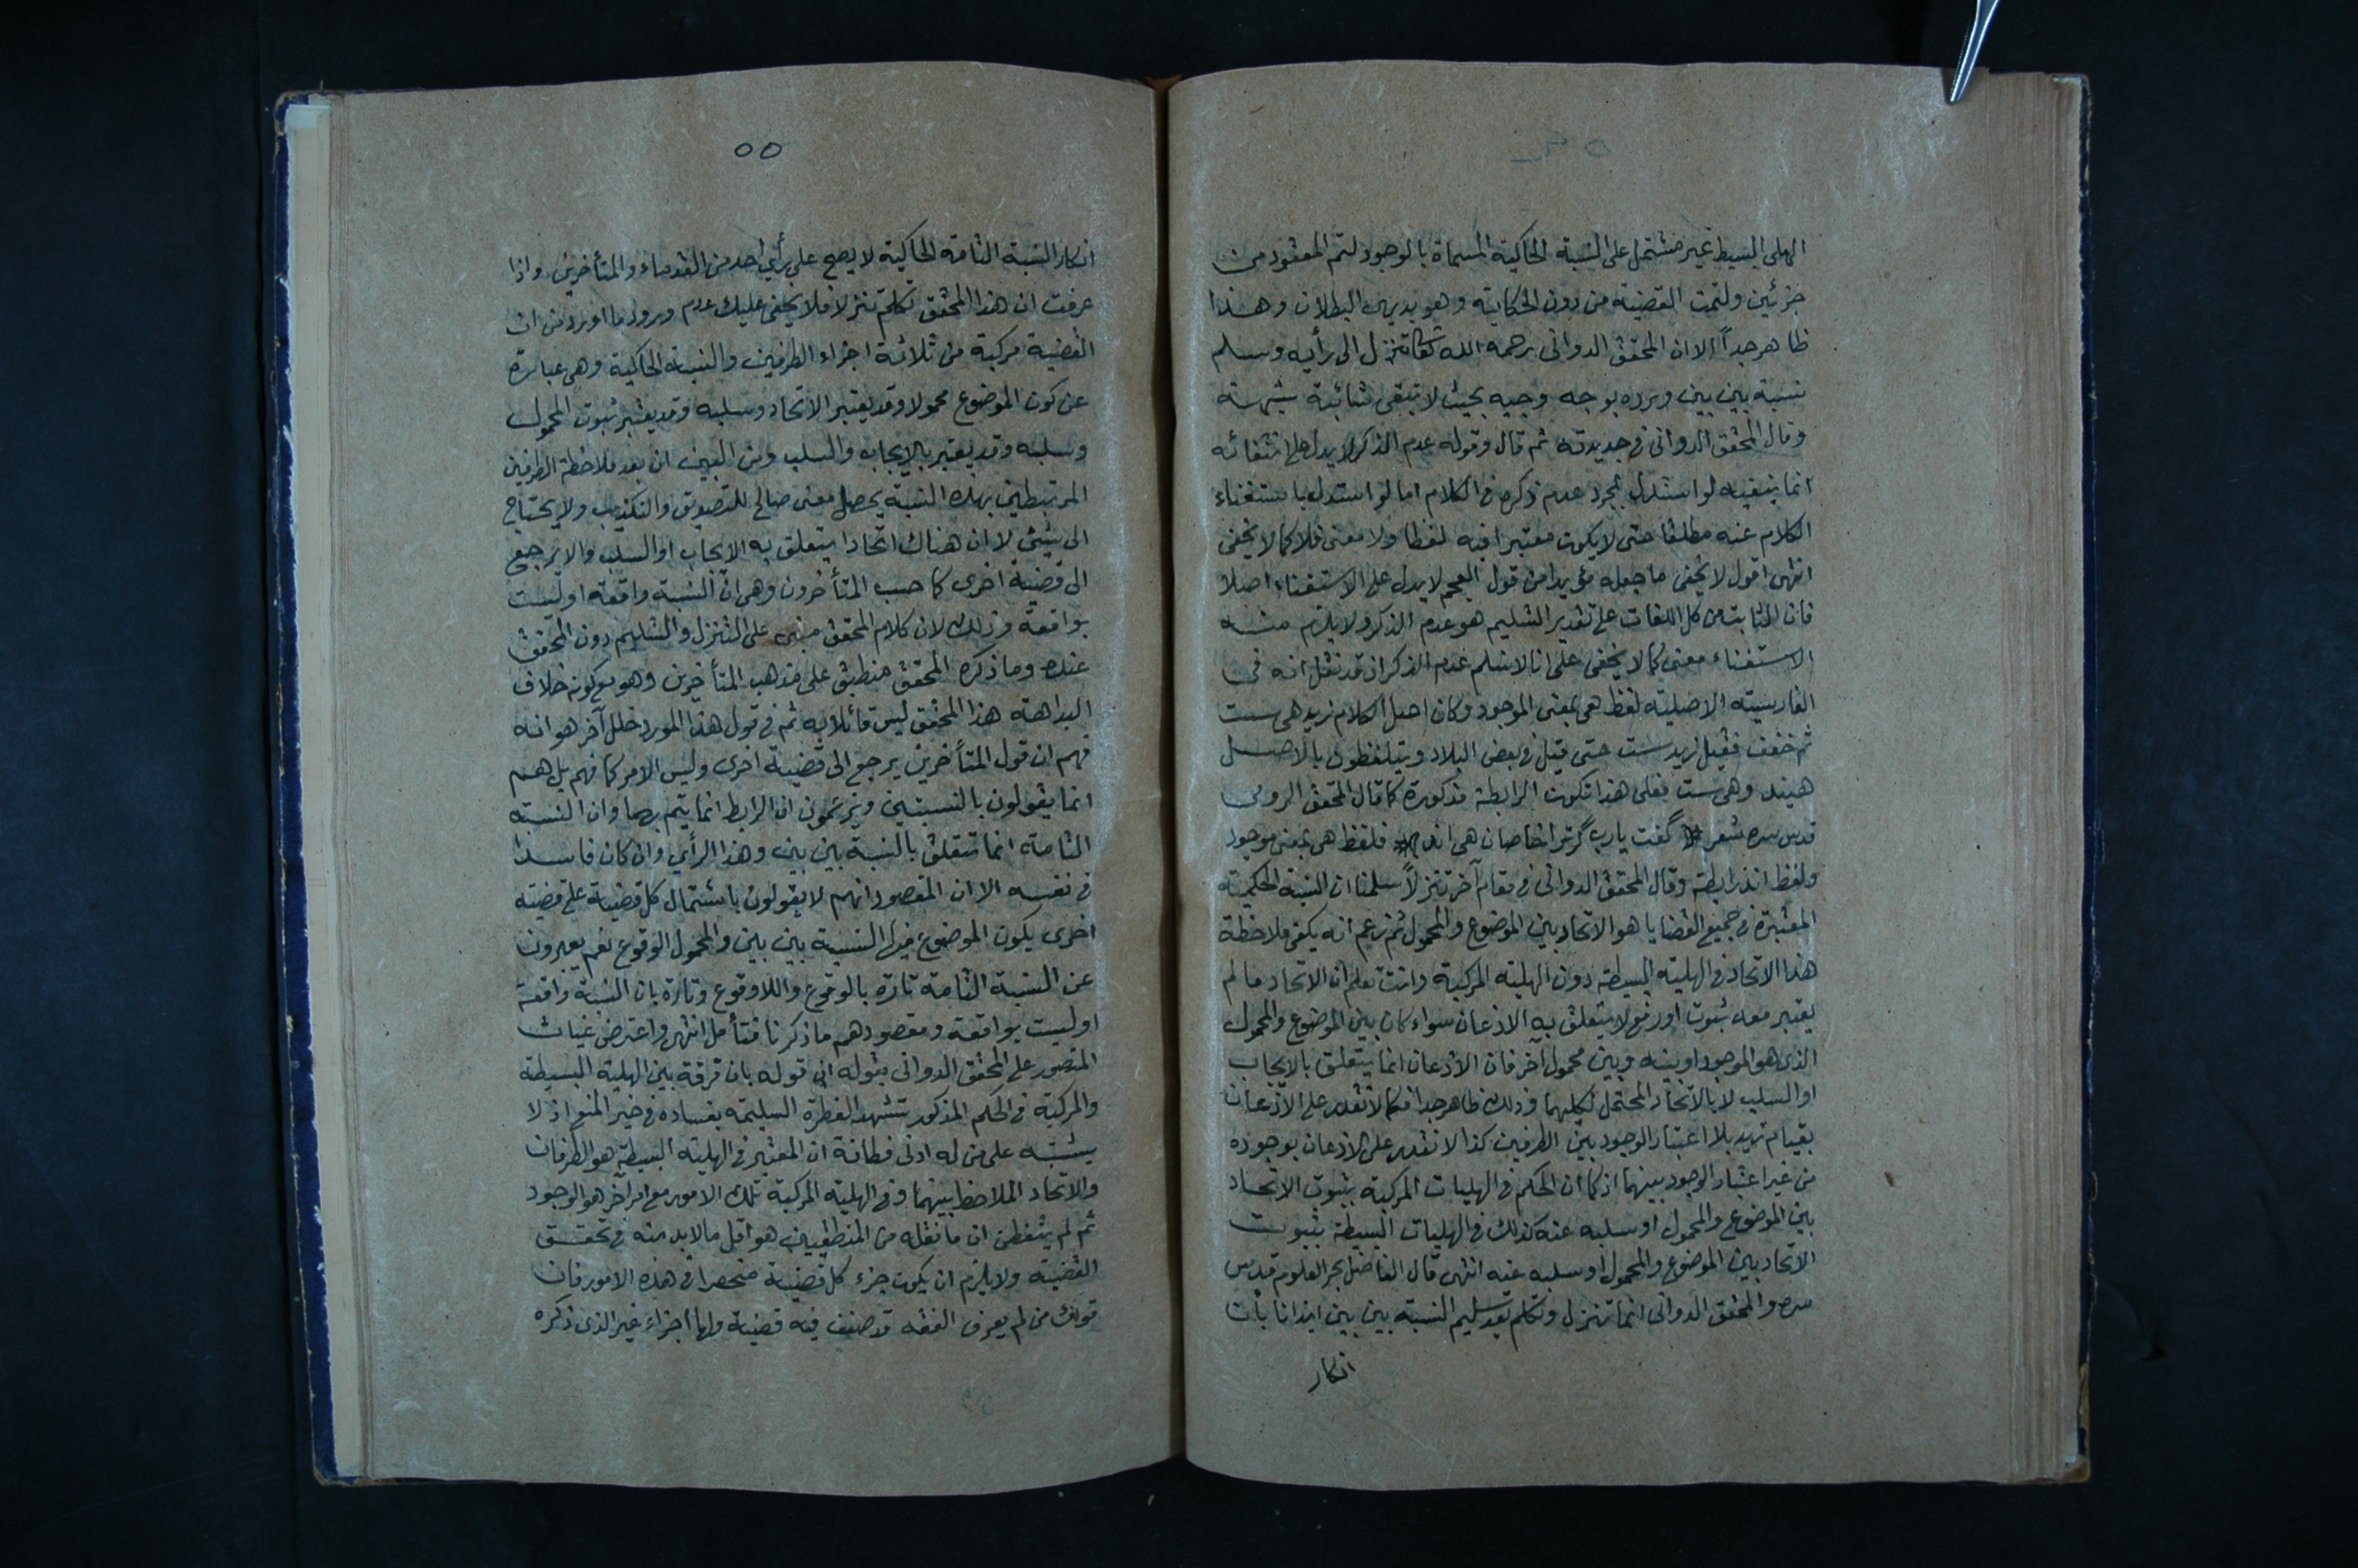 الهلى البسيط غير مشتمل على النسبة الحاكية المسماة بالوجود لتم المعقود من
جزئين ولتمت القضية من دون الحكاية وهو بديهى البطلان وهذا
ظاهر جداً الا ان المحقق الدوانى رحمه الله تعالى تنزل الى رأيه وسلم
نسبة بين بين ورده بوجه وجيه بحيث لا تبقى شائبة شبهة
وقال المحقق الدوانى فى جديدته ثم قال وقوله عدم الذكر لا يدل على انتفائه
انما ينفيه لو استدل بمجرد عدم ذكره فى الكلام اما لو استدل باستغناء
الكلام عنه مطلقا حتى لا يكون معتبرا فيه لفظا ولا معنى فلا كما لا يخفى
انتهى اقول لا يخفى ما جعله مؤيدا من قول العجم لا يدل على الاستغناء اصلا
فان الثابت من كل اللغات على تقدير التسليم هو عدم الذكر ولا يلزم منه
الاستغناء معنى كما لا يخفى على انا لا نسلم عدم الذكر اذ قد نقل انه فى
الفارسية الاصلية لفظ هى بمعنى الموجود وكان اصل الكلام زيد هى ست
ثم خفف فقيل زيد ست حتى قيل فى بعض البلاد ويتلفظون بالاصل
هيند وهى ست فعلى هذا تكون الرابطة مذكورة كما قال المحقق الرومى
قدس سره شعر گفت يارب گر ترا خاصان هى اند فلفظ هى بمعنى موجود
ولفظ اند رابطة وقال المحقق الدوانى فى مقام آخر تنزلاً سلمنا ان النسبة الحكمية
المعتبرة فى جميع القضايا هو الاتحاد بين الموضوع والمحمول ثم زعم انه يكفى ملاحظة
هذا الاتحاد فى الهلية البسيطة دون الهلية المركبة وانت تعلم ان الاتحاد ما لم
يعتبر معه ثبوت او رفع لا يتعلق به الاذعان سواء كان بين الموضوع والمحمول
الذى هو الموجود او بينه وبين محمول آخر فان الاذعان انما يتعلق بالايجاب
او السلب لا بالاتحاد المحتمل لكليهما وذلك ظاهر جدا فكما لا نقدر على الاذعان
بقيام زيد بلا اعتبار الوجود بين الطرفين كذا لا نقدر على الاذعان بوجوده
من غير اعتبار الوجود بينهما اذ كما ان الحكم فى الهليات المركبة بثبوت الاتحاد
بين الموضوع والمحمول او سلبه عنه كذلك فى الهليات البسيطة بثبوت
الاتحاد بين الموضوع والمحمول او سلبه عنه انتهى قال الفاضل بحر العلوم قدس
سره والمحقق الدوانى انما تنزل وتكلم بعد تسليم النسبة بين بين ايذانا بأن
انكار
٥٥
انكار النسبة التامة الحاكية لا يصح على رأي احد من القدماء والمتأخرين واذا
عرفت ان هذا المحقق تكلم تنزلا فلا يخفى عليك عدم ورود ما اورد من ان
القضية مركبة من ثلاثة اجزاء الطرفين والنسبة الحاكية وهى عبارة
عن كون الموضوع محمولا وقد يعتبر الاتحاد وسلبه وقد يعتبر ثبوت المحمول
وسلبه وقد يعتبر بالايجاب والسلب ومن البين ان بعد ملاحظة الطرفين
المرتبطين بهذه النسبة يحصل معنى صالح للتصديق والتكذيب ولا يحتاج
الى شيئ لا ان هناك اتحادا يتعلق به الايجاب او السلب والا يرجع
الى قضية اخرى كما حسب المتأخرون وهى ان النسبة واقعة او ليست
بواقعة وذلك لان كلام المحقق مبنى على التنزل والتسليم دون المحقق
عنده وما ذكره المحقق منطبق على مذهب المتأخرين وهو مع كونه خلاف
البداهة هذا المحقق ليس قائلا به ثم فى قول هذا المورد خلل آخر هو انه
فهم ان قول المتأخرين يرجع الى قضية اخرى وليس الامر كما فهم بل هم
انما يقولون بالنسبتين ويزعمون ان الرابط انما يتم بهما وان النسبة
التامة انما تتعلق بالنسبة بين بين وهذا الرأي وان كان فاسدا
فى نفسه الا ان المقصود انهم لا يقولون باشتمال كل قضية على قضية
اخرى يكون الموضوع فيها النسبة بين بين والمحمول الوقوع نعم يعبرون
عن النسبة التامة تارة بالوقوع واللاوقوع وتارة بان النسبة واقعة
او ليست بواقعة ومقصودهم ما ذكرنا فتأمل انتهى واعترض غياث
المنصور على المحقق الدوانى بقوله ان قوله بان تفرقة بين الهلية البسيطة
والمركبة فى الحكم المذكور تشهد الفطرة السليمة بفساده فى خير المنع اذ لا
يشتبه على من له ادنى فطانة ان المعتبر فى الهلية البسيطة هو الطرفان
والاتحاد الملاحظ بينهما وفى الهلية المركبة تلك الامور مع امر آخر هو الوجود
ثم لم يتفطن ان ما نقله من المنطقيين هو اقل ما لا بد منه فى تحقق
القضية ولا يلزم ان يكون جزء كل قضية منحصرا فى هذه الامور فان
قولك من لم يعرف الفقه قد صنف فيه قضية ولها اجزاء غير الذى ذكره